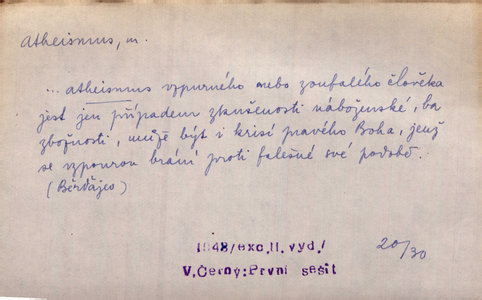 Atheismus, m.
... atheismus vzpurného nebo zoufalého člověka
jest jen případem zkušenosti náboženské, ba
zbožnosti, může být i krisí pravého Boha, jenž
se vzpourou brání proti falešné své podobě.
(Běrďajev)
1948/exc.II.vyd./
V.Černý:První sešit
20/30